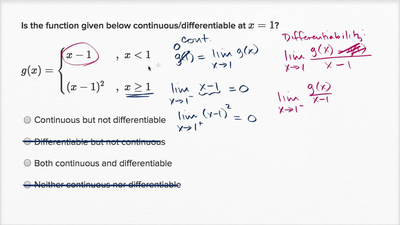 Is the function given below continuous/differentiable at x = 1?
g(x) = { x − 1 , x < 1
(x − 1)² , x ≥ 1
cont.
0
g(1) = lim x→1 g(x)
lim x→1⁻ x−1 = 0
lim x→1⁺ (x−1)² = 0
Differentiability:
lim x→1 g(x) / x − 1
lim x→1⁻ g(x) / x−1
Continuous but not differentiable
Differentiable but not continuous
Both continuous and differentiable
Neither continuous nor differentiable